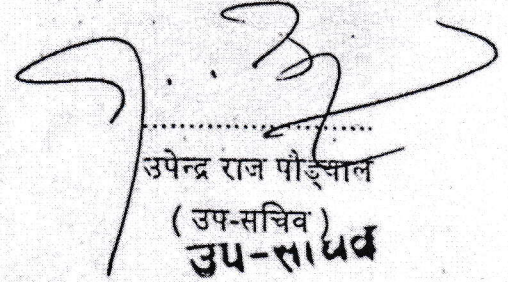 .......................................
उपेन्द्र राज पौड्याल
( उप-सचिव )
उप-सचिव